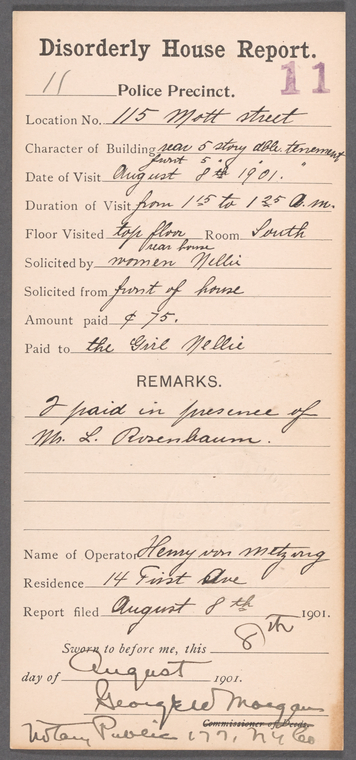 Disorderly House Report.
11
11 Police Precinct.
Location No. 115 Mott street
Character of Building rear 5 story dble. tenement
front 5 " " "
Date of Visit August 8th 1901.
Duration of Visit from 1 15 to 1 25 A.m.
Floor Visited top floor Room South
rear house
Solicited by women Nellie
Solicited from front of house
Amount paid ¢ 75.
Paid to the Girl Nellie
REMARKS.
I paid in presence of
Mr. L. Rosenbaum.
Name of Operator Henry von Metzing
Residence 14 First Ave
Report filed August 8th 1901.
Sworn to before me, this 8th
day of August 1901.
George W Morgan
Commissioner of Deeds.
Notary Public 177, NY Co